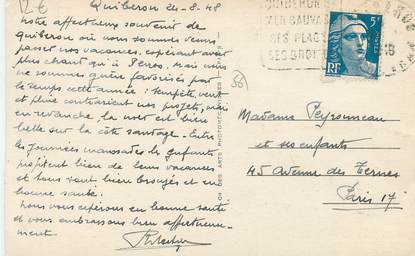 12€
Quiberon 24-8-48
Notre affectueux souvenir de
Quiberon où nous sommes venus
passer nos vacances, espérant avoir
plus chaud qu'à Mais nous
ne sommes guère favorisés par
le temps cette année : tempête, vent
et pluie contrarient nos projets, mais
en revanche, la mer est bien
belle sur la côte sauvage. Entre
les journées maussades les enfants
profitent bien de leurs vacances
et sont tous bien bronzés et en
bonne santé.
Nous vous espérons en bonne santé
et vous embrassons bien affectueuse-
ment
56
QUIBERON
MER SAUVAGE
SES PLAGES
SES GROTTES
5F
RF
POSTES
Madame Peyronneau
et ses enfants
45 Avenue des Ternes
Paris 17